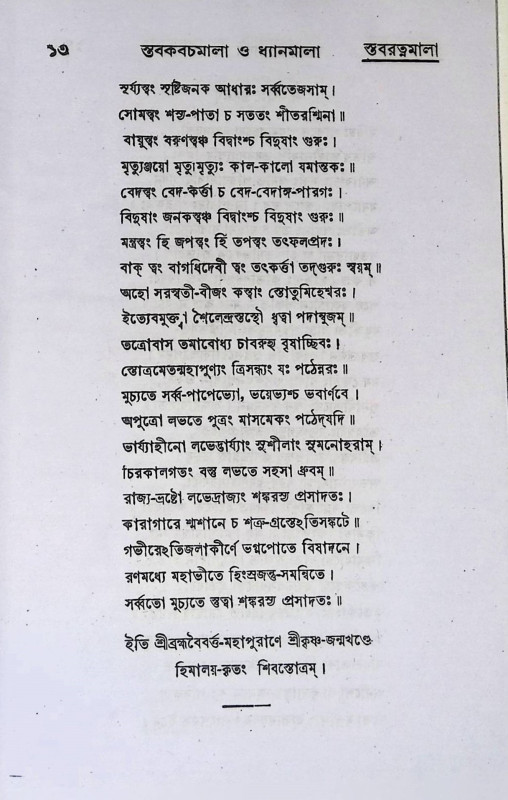 ১৩ স্তবকবচমালা ও ধ্যানমালা স্তবরত্নমালা
সূর্য্যস্ত্বং সৃষ্টিজনক আধারঃ সর্ব্বতেজসাম্।
সোমস্ত্বং শস্য-পাতা চ সততং শীতরশ্মিনা॥
বায়ুস্ত্বং বরুণস্ত্বঞ্চ বিদ্বাংশ্চ বিদুষাং গুরুঃ।
মৃত্যুঞ্জয়ো মৃত্যুমৃত্যুঃ কাল-কালো যমান্তকঃ॥
বেদস্ত্বং বেদ-কর্ত্তা চ বেদ-বেদাঙ্গ-পারগঃ।
বিদুষাং জনকস্ত্বঞ্চ বিদ্বাংশ্চ বিদুষাং গুরুঃ॥
মন্ত্রস্ত্বং হি জপস্ত্বং হি তপস্ত্বং তৎফলপ্রদঃ।
বাক্ ত্বং বাগধিদেবী ত্বং তৎকর্ত্তা তদ্গুরুঃ স্বয়ম্॥
অহো সরস্বতী-বীজং কস্ত্বাং স্তোতুমিহেশ্বরঃ।
ইত্যেবমুক্ত্বা শৈলেন্দ্রস্তস্থৌ ধৃত্বা পদাম্বুজম্॥
তত্রোবাস তমাবোধ্য চাবরুহ্য বৃষাচ্ছিবঃ।
স্তোত্রমেতন্মহাপুণ্যং ত্রিসন্ধ্যং যঃ পঠেন্নরঃ॥
মুচ্যতে সর্ব্ব-পাপেভ্যো, ভয়েভ্যশ্চ ভবার্ণবে।
অপুত্রো লভতে পুত্রং মাসমেকং পঠেদ্‌যদি॥
ভার্য্যাহীনো লভেদ্ভার্য্যাং সুশীলাং সুমনোহরাম্।
চিরকালগতং বস্তু লভতে সহসা ধ্রুবম্॥
রাজ্য-ভ্রষ্টো লভেদ্রাজ্যং শঙ্করস্য প্রসাদতঃ।
কারাগারে শ্মশানে চ শত্রু-গ্রস্তেঽতিসঙ্কটে॥
গভীরেঽতিজলাকীর্ণে ভগ্নপোতে বিষাদনে।
রণমধ্যে মহাভীতে হিংস্রজন্তু-সমন্বিতে।
সর্ব্বতো মুচ্যতে স্তুত্বা শঙ্করস্য প্রসাদতঃ॥
ইতি শ্রীব্রহ্মবৈবর্ত্ত-মহাপুরাণে শ্রীকৃষ্ণ-জন্মখণ্ডে
হিমালয়-কৃতং শিবস্তোত্রম্।